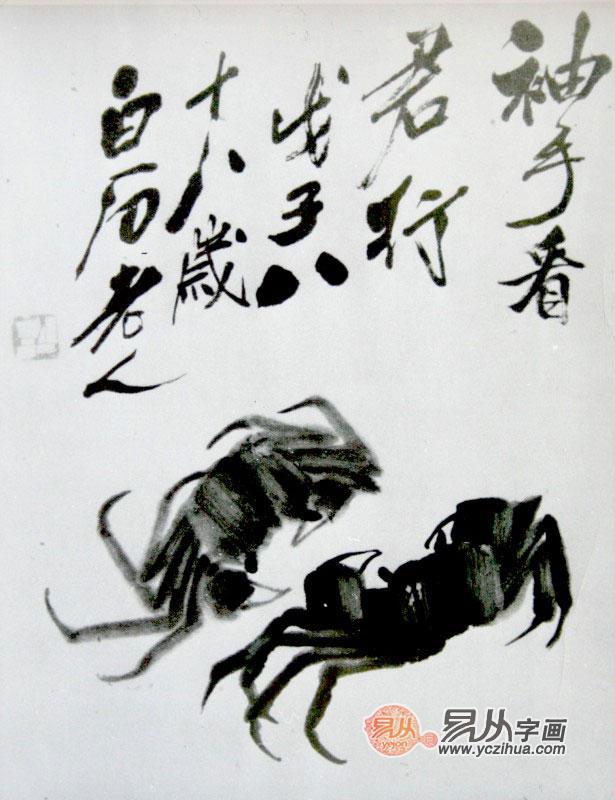 袖手看
君行
戊子八
十八歲
白石老人
易从
易从字画
www.yczihua.com